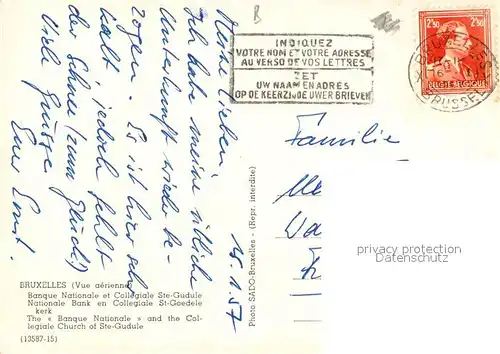 B
INDIQUEZ
VOTRE NOM ET VOTRE ADRESSE
AU VERSO DE VOS LETTRES
ZET
UW NAAM EN ADRES
OP DE KEERZIJDE UWER BRIEVEN
2F50 2F50
BELGIE-BELGIQUE
BRUSSEL
15.1.57
Meine Lieben
Ich habe meine übliche
Unterkunft wieder be-
zogen. Es ist hier sehr
kalt jedoch fehlt
der Schnee (zum Glück!)
Viele Grüsse
Euer Ernst.
Familie
privacy protection
www.ansichtskartenversand.com
Photo SADO-Bruxelles - (Repr. interdite)
BRUXELLES (Vue aérienne)
Banque Nationale et Collégiale Ste-Gudule
Nationale Bank en Collegiale St-Goedele
kerk
The « Banque Nationale » and the Col-
legiale Church of Ste-Gudule
(13587-15)